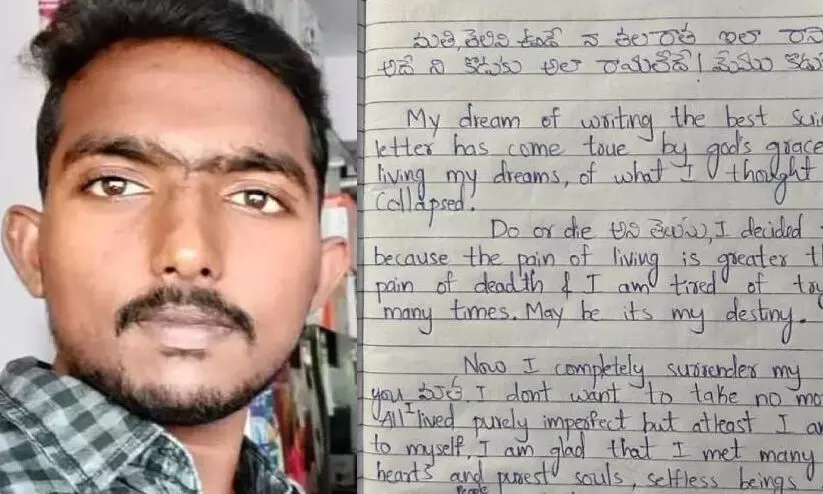 మతి, తెలివి ఉండే నా తల రాత ఇలా
అదే నీ కొడుకు అలా రాయలేదే! మేము
My dream of writing the best
letter has come toue by god's grace
living my dreams, of what I thought
Collapsed.
Do or die అని తెలుసు, I decided
because the pain of living is greater
pain of deadth & I am tired of
many times. May be its my destiny.
Now I completely surrender my
you I dont want to take no
All I lived purely imperfect but atleast I
to myself, I am glad that I met many
hearts and purest souls, selfless beings
People